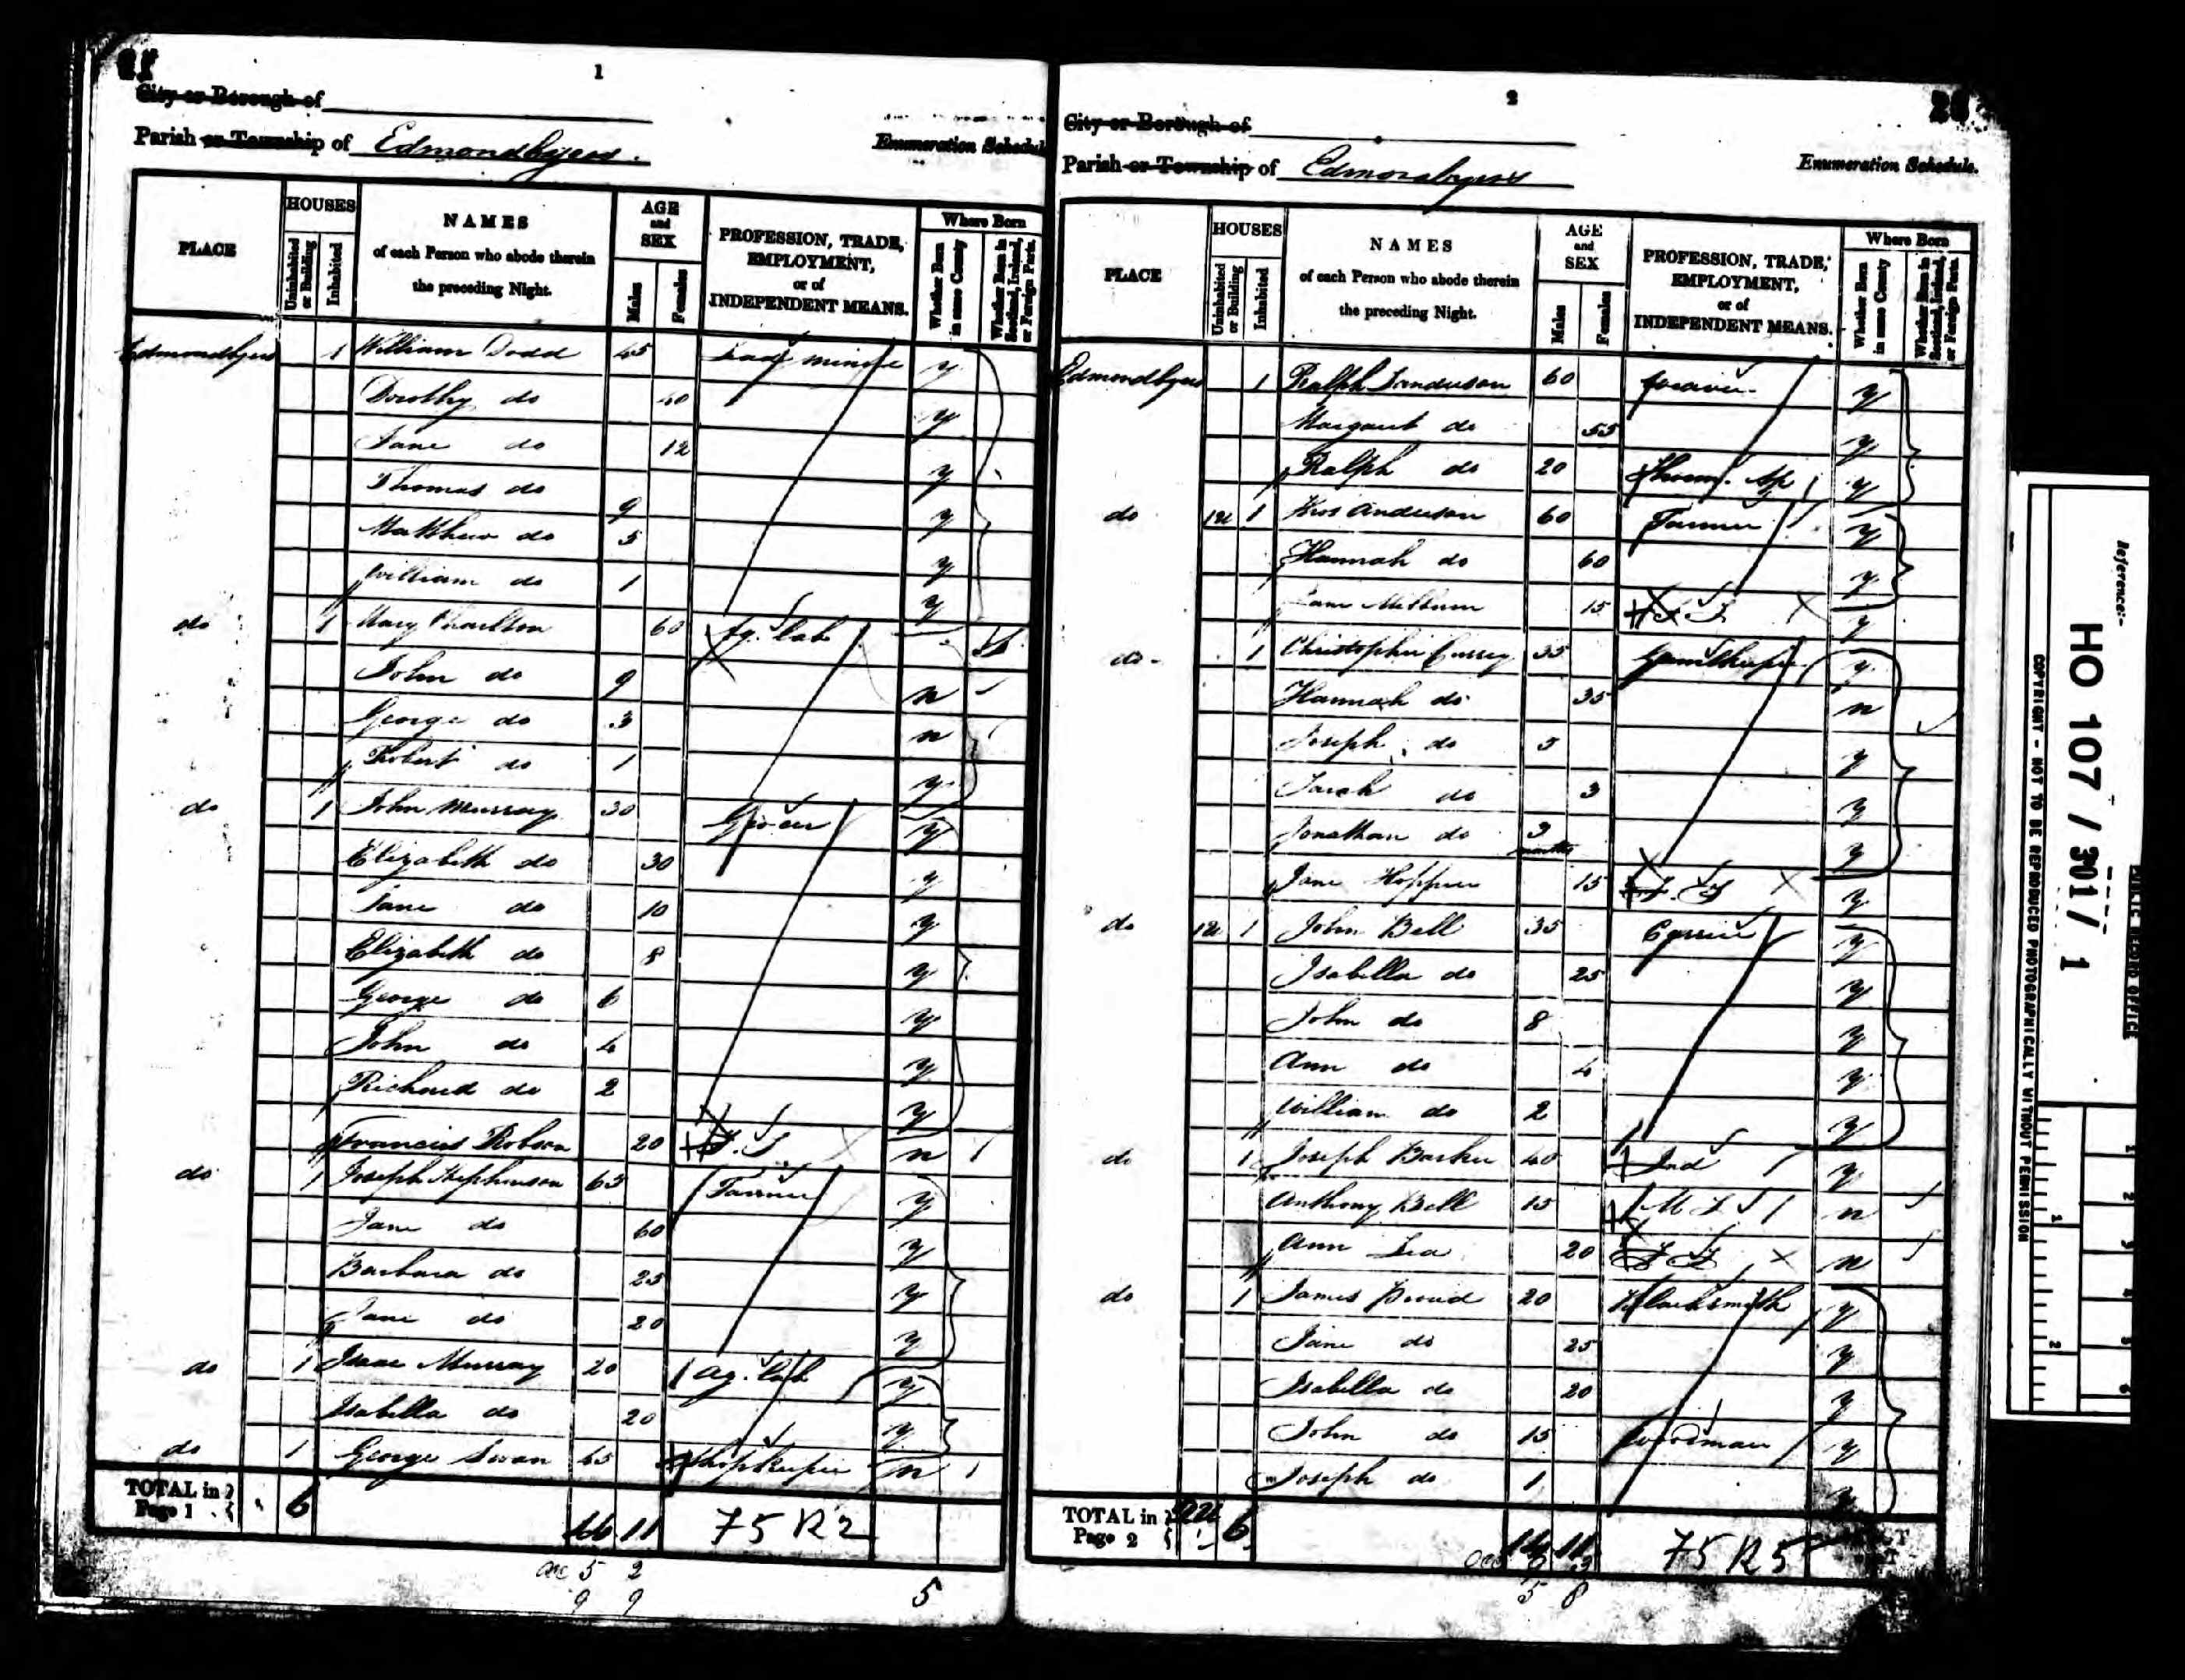 1
City or Borough of
Parish or Township of Edmondbyers.
Enumeration Schedule
PLACE
HOUSES
Uninhabited or Building
Inhabited
NAMES
of each Person who abode therein
the preceding Night.
AGE
and
SEX
Males
Females
PROFESSION, TRADE,
EMPLOYMENT,
or of
INDEPENDENT MEANS.
Where Born
Whether Born in same County
Whether Born in Scotland, Ireland, or Foreign Parts.
Edmondbyers 1 William Dodd 45 Lead miner y
Dorothy do 40 y
Jane do 12 y
Thomas do 9 y
Matthew do 5 y
William do 1 y
do 1 Mary Charlton 60 Ag. lab
John do 9 n
George do 3 n
Robert do 1 y
do 1 John Murray 30 Grocer y
Elizabeth do 30 y
Jane do 10 y
Elizabeth do 8 y
George do 6 y
John do 4 y
Richard do 2 y
Francies Robson 20 F. S n
do 1 Joseph Stephenson 65 Farmer y
Jane do 60 y
Barbara do 25 y
Jane do 20 y
do 1 Isaac Murray 20 Ag. lab y
Isabella do 20 y
do 1 George Swan 45 Shopkeeper n
TOTAL in
Page 1
6 11 75 R2
5 2
9 9
5
2
City or Borough of
Parish or Township of Edmondbyers
Enumeration Schedule.
PLACE
HOUSES
Uninhabited or Building
Inhabited
NAMES
of each Person who abode therein
the preceding Night.
AGE
and
SEX
Males
Females
PROFESSION, TRADE,
EMPLOYMENT,
or of
INDEPENDENT MEANS.
Where Born
Whether Born in same County
Whether Born in Scotland, Ireland, or Foreign Parts.
Edmondbyers 1 Ralph Sanderson 60 y
Margaret do 55 y
Ralph do 20 y
do 1u 1 Anderson 60 Farmer y
Hannah do 60 y
Jane Milburn 15 F. S y
do 1 Christopher Currey 35 Gamekeeper y
Hannah do 35 n
Joseph do 5 y
Sarah do 3 y
Jonathan do 3 months y
Jane Hopper 15 F. S y
do 1u 1 John Bell 35 Carrier y
Isabella do 25 y
John do 8 y
Ann do 4 y
William do 2 y
do 1 Joseph Barker 40 Ind y
Anthony Bell 15 M S n
Ann Lea 20 F S n
do 1 James Proud 20 Blacksmith y
Jane do 25 y
Isabella do 20 y
John do 15 Woodman y
Joseph do 1 y
TOTAL in
Page 2
6 14 11 75 R5
5 8
Reference:-
HO 107/301/1
PUBLIC RECORD OFFICE
COPYRIGHT - NOT TO BE REPRODUCED PHOTOGRAPHICALLY WITHOUT PERMISSION